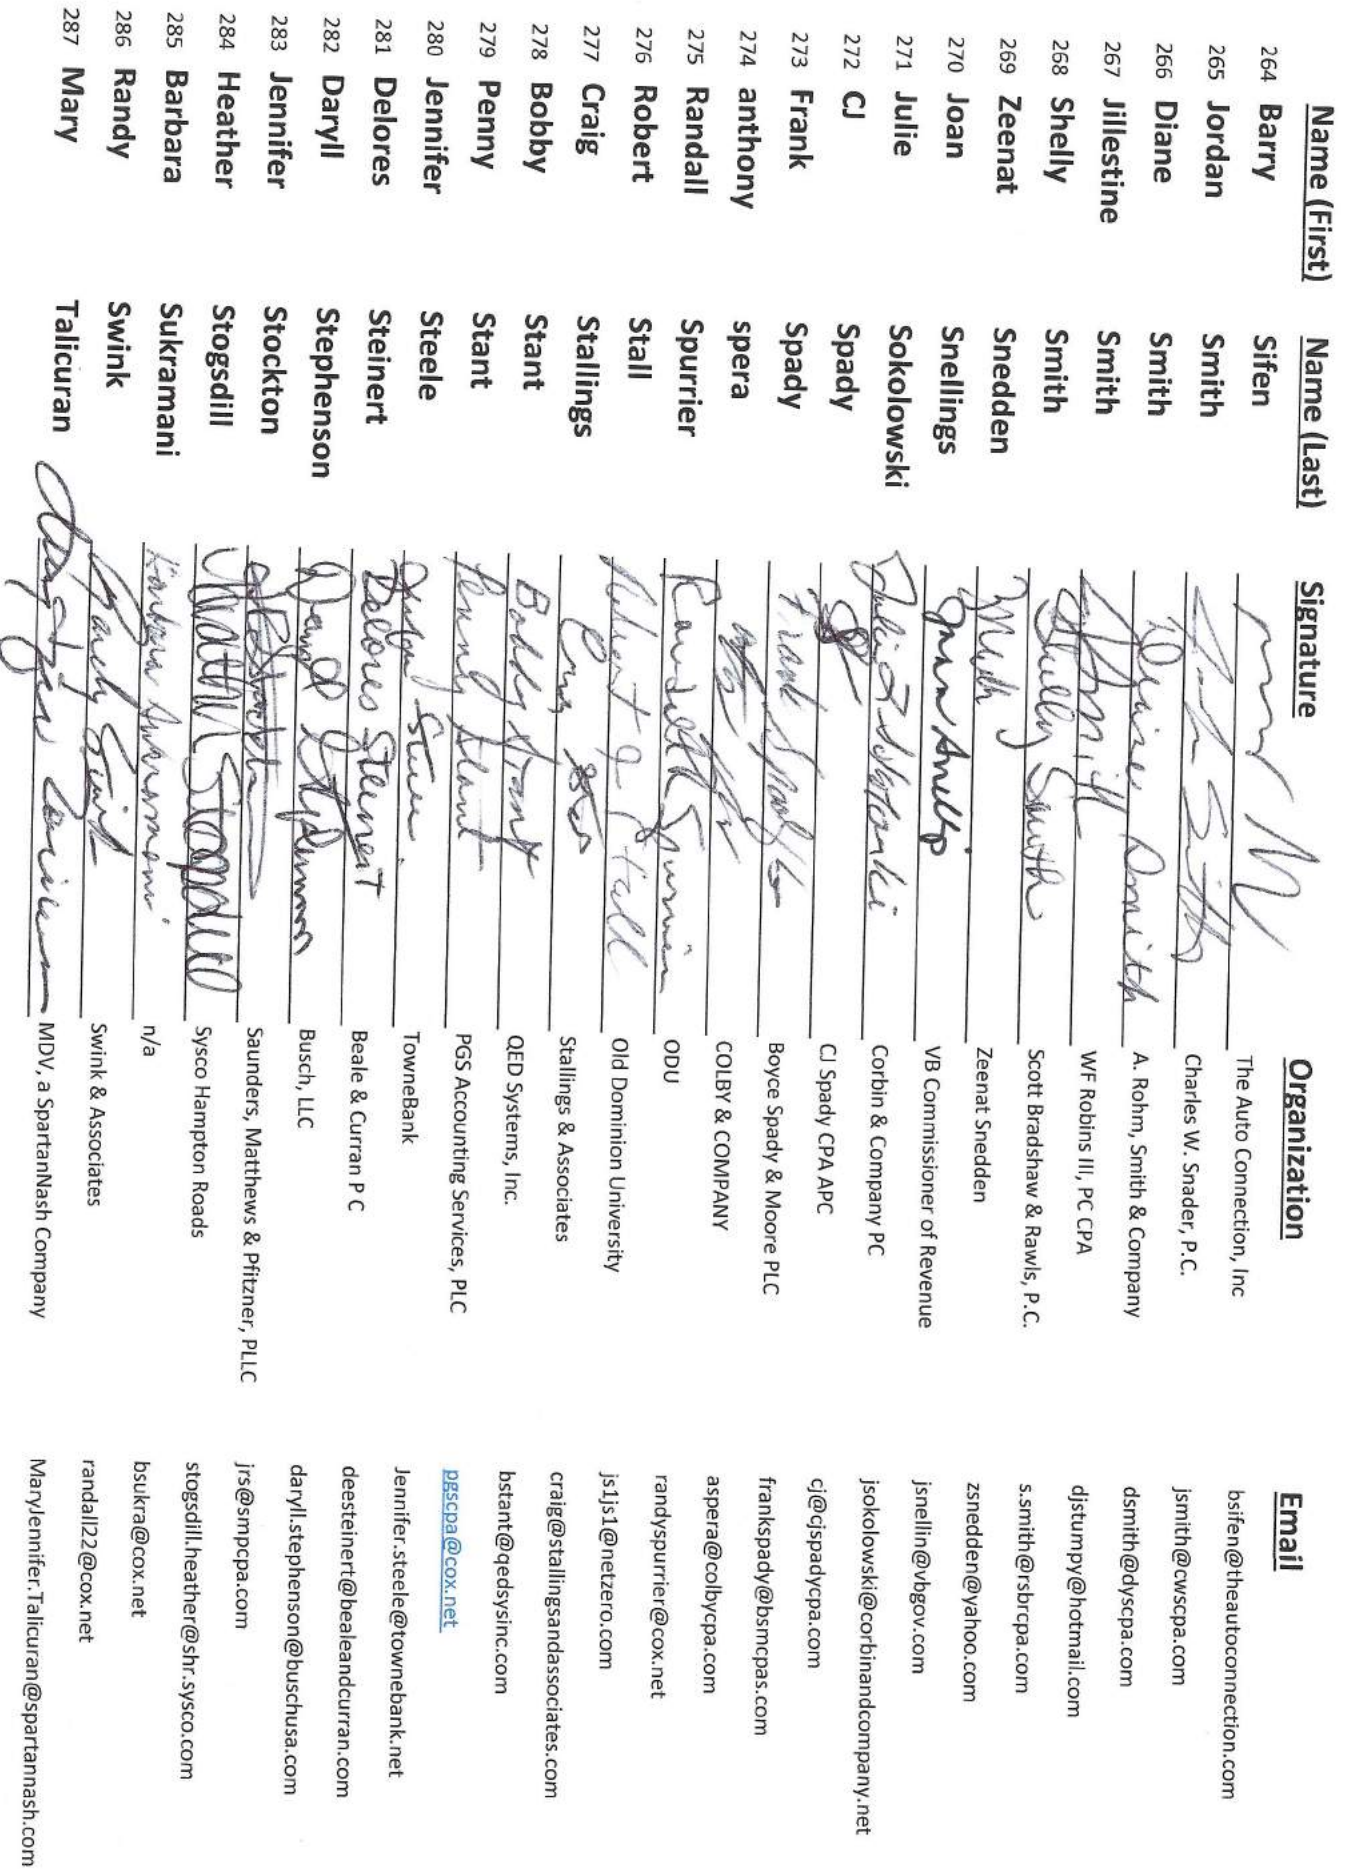 Name (First) Name (Last) Signature Organization Email
264 Barry Sifen The Auto Connection, Inc bsifen@theautoconnection.com
265 Jordan Smith Charles W. Snader, P.C. jsmith@cwscpa.com
266 Diane Smith Diane Smith A. Rohm, Smith & Company dsmith@dyscpa.com
267 Jillestine Smith WF Robins III, PC CPA djstumpy@hotmail.com
268 Shelly Smith Shelly Smith Scott Bradshaw & Rawls, P.C. s.smith@rsbrcpa.com
269 Zeenat Snedden Zeenat Snedden zsnedden@yahoo.com
270 Joan Snellings VB Commissioner of Revenue jsnellin@vbgov.com
271 Julie Sokolowski Corbin & Company PC jsokolowski@corbinandcompany.net
272 CJ Spady CJ Spady CPA APC cj@cjspadycpa.com
273 Frank Spady Boyce Spady & Moore PLC frankspady@bsmcpas.com
274 anthony spera COLBY & COMPANY aspera@colbycpa.com
275 Randall Spurrier ODU randyspurrier@cox.net
276 Robert Stall Robert J Stall Old Dominion University js1js1@netzero.com
277 Craig Stallings Stallings & Associates craig@stallingsandassociates.com
278 Bobby Stant Bobby Stant QED Systems, Inc. bstant@qedsysinc.com
279 Penny Stant Penny Stant PGS Accounting Services, PLC pgscpa@cox.net
280 Jennifer Steele TowneBank Jennifer.steele@townebank.net
281 Delores Steinert Delores Steinert Beale & Curran P C deesteinert@bealeandcurran.com
282 Daryll Stephenson Busch, LLC daryll.stephenson@buschusa.com
283 Jennifer Stockton Saunders, Matthews & Pfitzner, PLLC jrs@smpcpa.com
284 Heather Stogsdill Heather Stogsdill Sysco Hampton Roads stogsdill.heather@shr.sysco.com
285 Barbara Sukramani Barbara Sukramani n/a bsukra@cox.net
286 Randy Swink Randy Swink Swink & Associates randall22@cox.net
287 Mary Talicuran MDV, a SpartanNash Company MaryJennifer.Talicuran@spartannash.com